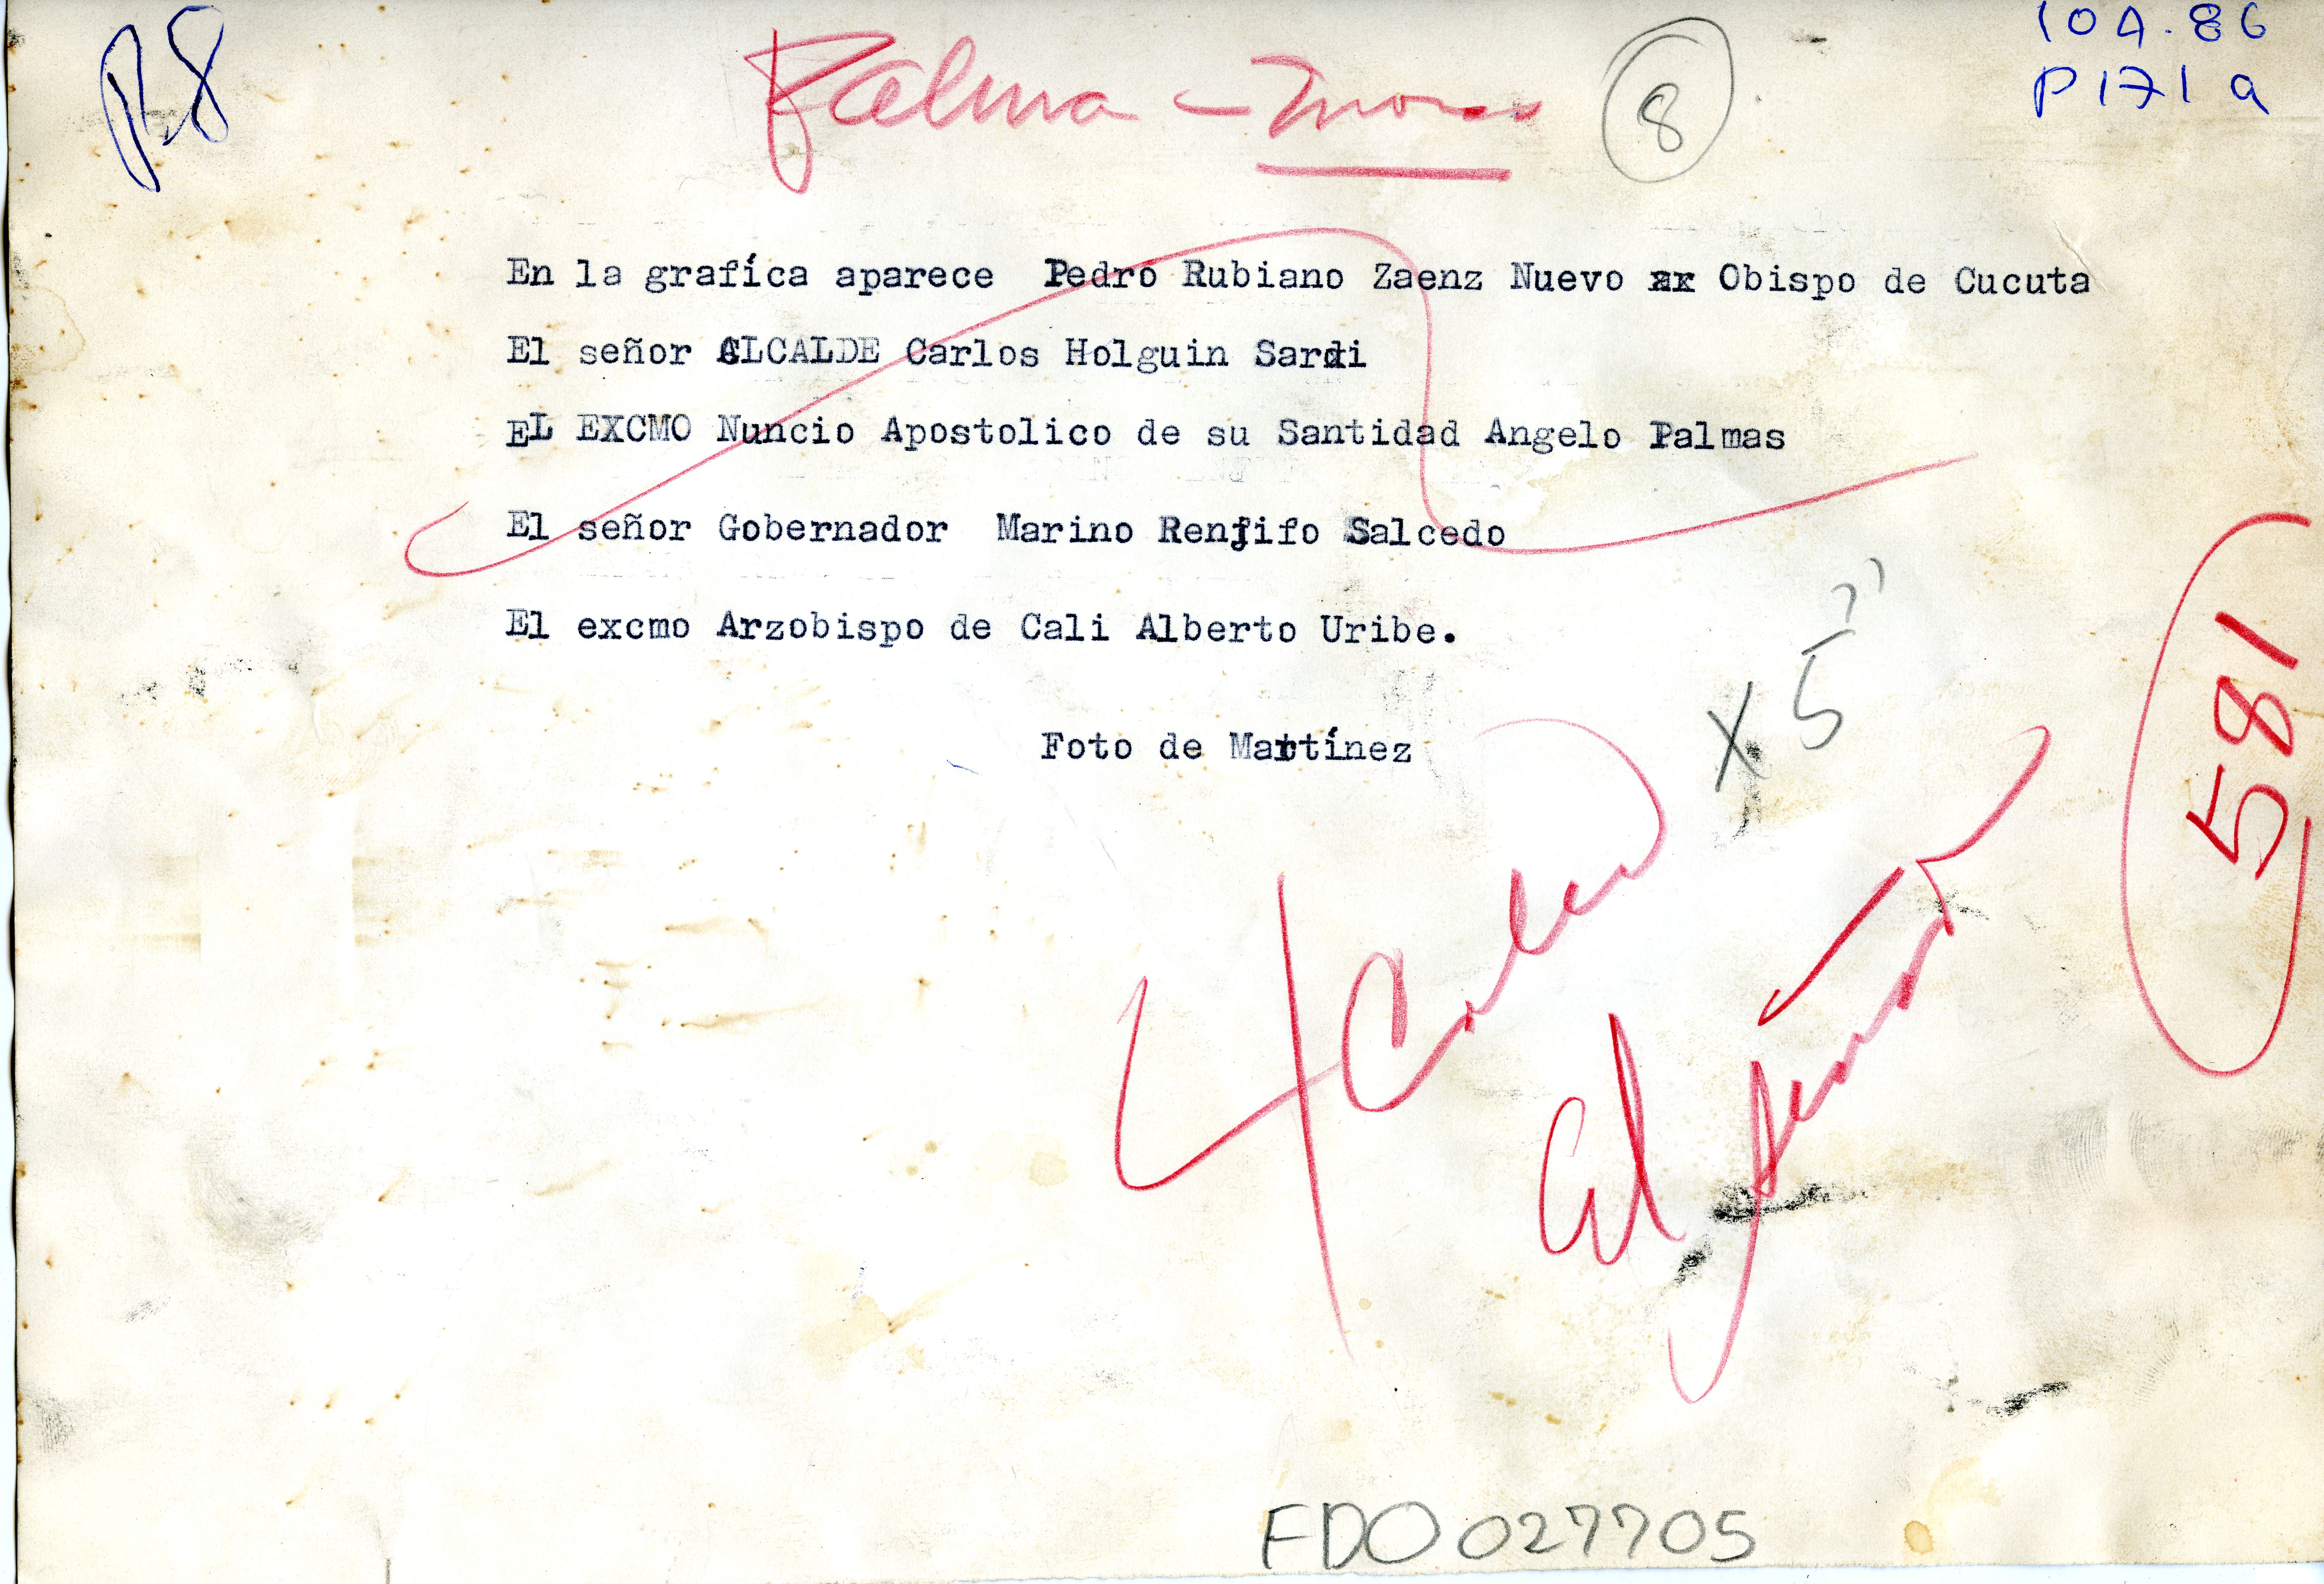 P.8
Palma -
8
104.86
P171a
En la grafíca aparece Pedro Rubiano Zaenz Nuevo Obispo de Cucuta
El señor ALCALDE Carlos Holguin Sardi
EL EXCMO Nuncio Apostolico de su Santidad Angelo Palmas
El señor Gobernador Marino Renjifo Salcedo
El excmo Arzobispo de Cali Alberto Uribe.
Foto de Martínez
x 5"
581
4
El
FDO027705